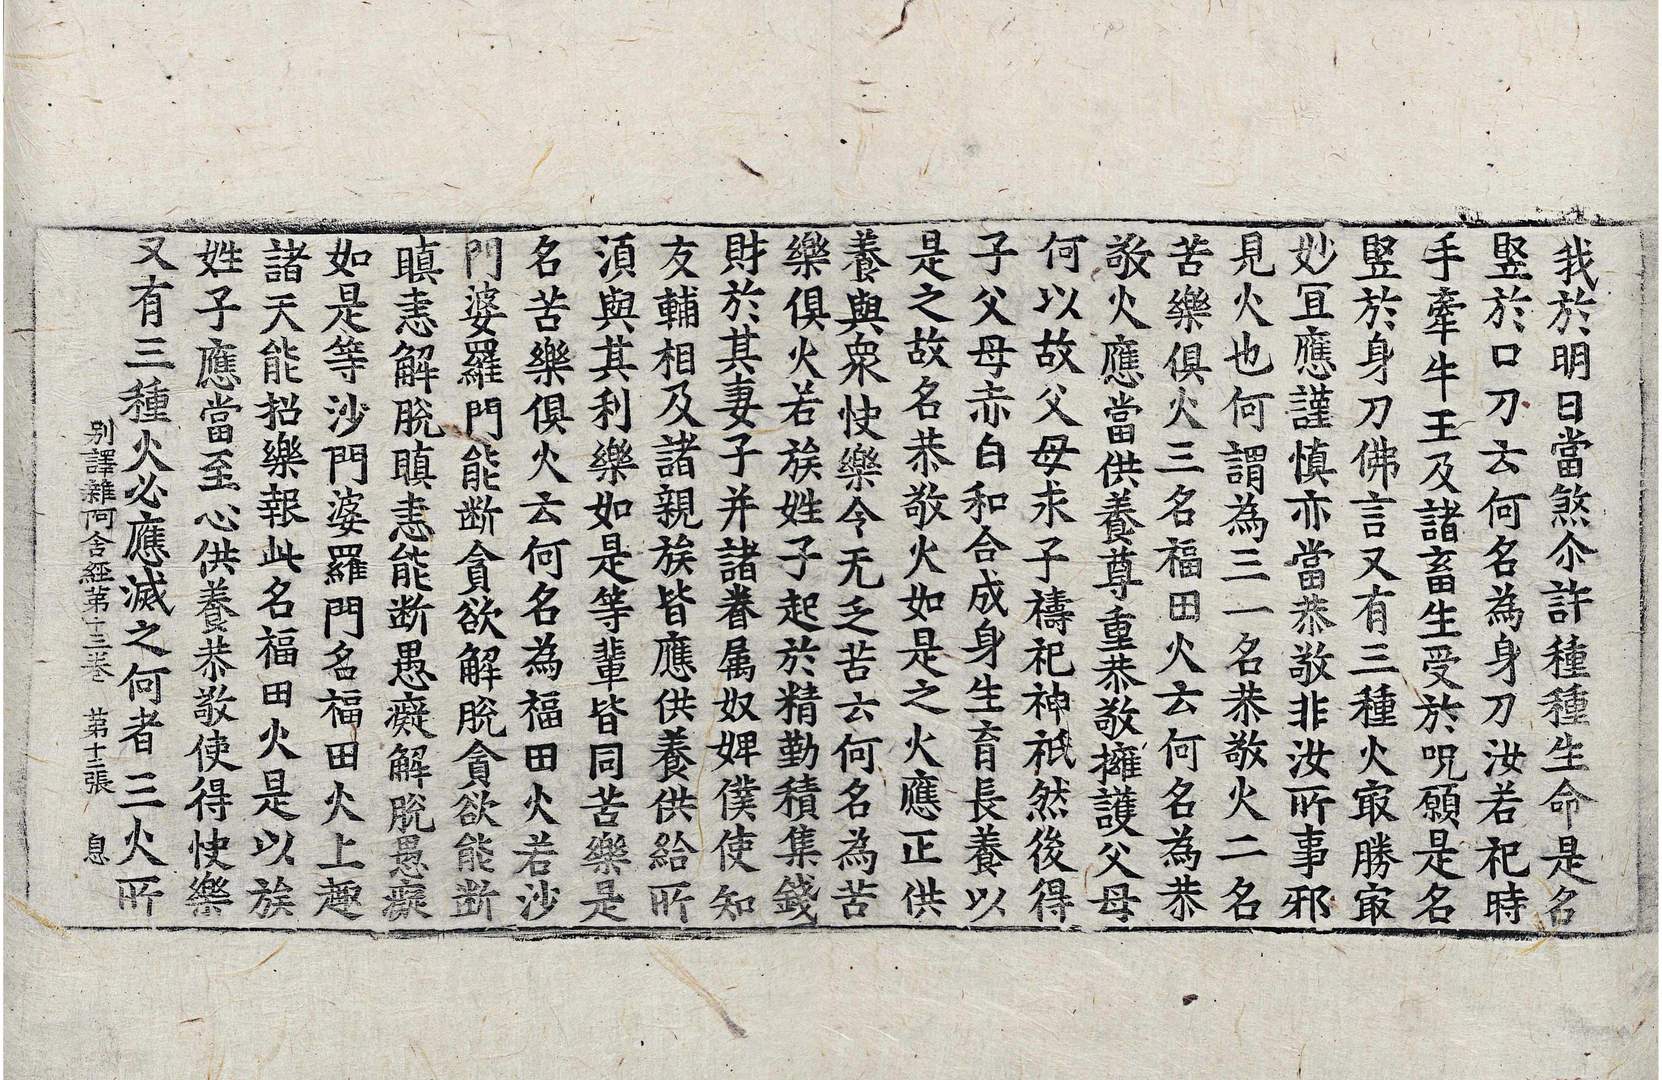 我於明日當煞尒許種種生命是名
竪於口刀云何名為身刀汝若祀時
手牽牛王及諸畜生受於呪願是名
竪於身刀佛言又有三種火㝡勝㝡
妙冝應謹慎亦當恭敬非汝所事邪
見火也何謂為三一名恭敬火二名
苦樂俱火三名福田火云何名為恭
敬火應當供養尊重恭敬擁護父母
何以故父母求子禱祀神祇然後得
子父母赤白和合成身生育長養以
是之故名恭敬火如是之火應正供
養與衆快樂令无乏苦云何名為苦
樂俱火若族姓子起於精勤積集錢
財於其妻子并諸眷属奴婢僕使知
友輔相及諸親族皆應供養供給所
湏與其利樂如是等輩皆同苦樂是
名苦樂俱火云何名為福田火若沙
門婆羅門能断貪欲解脫貪欲能断
瞋恚解脫瞋恚能断愚癡解脫愚癡
如是等沙門婆羅門名福田火上趣
諸天能招樂報此名福田火是以族
姓子應當至心供養恭敬使得快樂
又有三種火必應滅之何者三火所
别譯雜阿含經苐十三卷 苐十二張 息